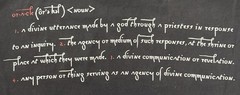 or·a·cle (ôr'ə kəl) <noun>
1. a divine utterance made by a god through a priestess in response
to an inquiry. 2. the agency or medium of such responses, at the shrine or
place at which they were made. 3. a divine communication or revelation.
4. any person or thing serving as an agency of divine communication.